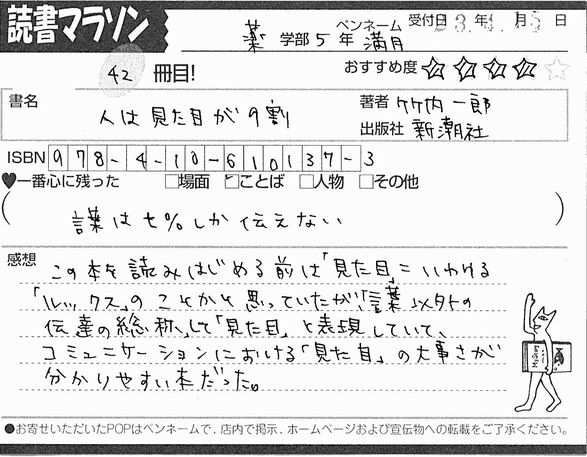 読書マラソン
薬 学部 5 年 ペンネーム 満月
受付日 年 月 日
42 冊目!
おすすめ度 ★★★★☆
書名 人は見た目が9割
著者 竹内一郎
出版社 新潮社
ISBN 978-4-10-610137-3
♥一番心に残った □場面 ☑ことば □人物 □その他
(言葉は七%しか伝えない)
感想 この本を読みはじめる前は「見た目」=いわゆる
「ルックス」のことかと思っていたが、「言葉以外の
伝達の総称」として「見た目」と表現していて、
コミュニケーションにおける「見た目」の大事さが
分かりやすい本だった。
●お寄せいただいたPOPはペンネームで、店内で掲示、ホームページおよび宣伝物への転載をご了承ください。